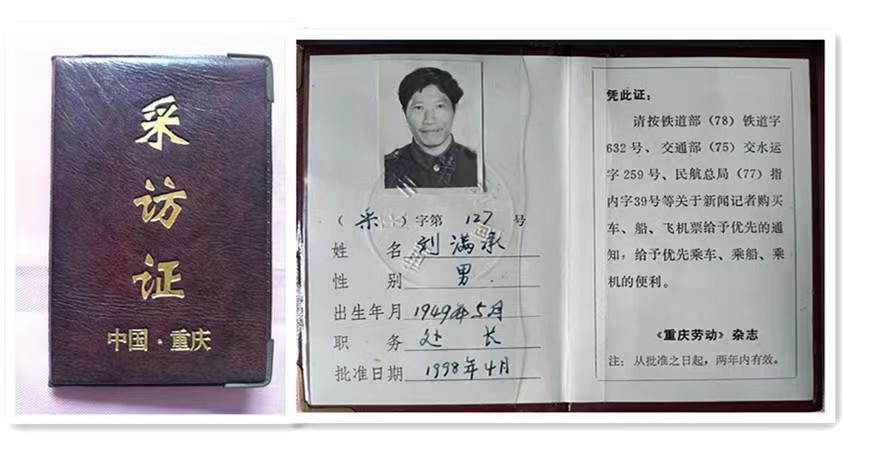 采
访
证
中国·重庆
(采)字第 127 号
姓 名 刘满承
性 别 男
出生年月 1949年5月
职 务 处 长
批准日期 1998年4月
凭此证：
请按铁道部（78）铁道字
632号、交通部（75）交水运
字259号、民航总局（77）指
内字39号等关于新闻记者购买
车、船、飞机票给予优先的通
知，给予优先乘车、乘船、乘
机的便利。
《重庆劳动》杂志
注：从批准之日起，两年内有效。